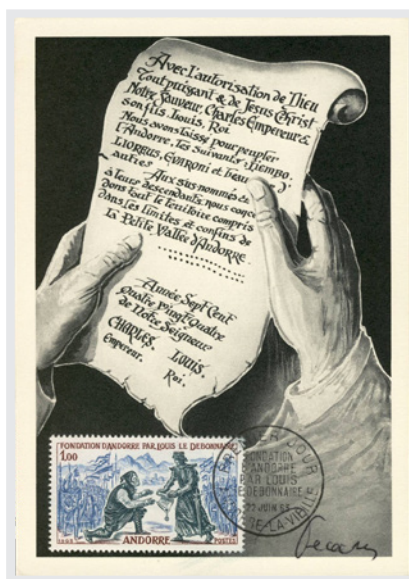 Avec l'autorisation de Dieu
Tout puissant & de Jesus Christ
Notre Sauveur, Charles Empereur &
son fils Louis, Roi
Nous avons laissé pour peupler
l'Andorre, les suivants
autres
Aux sus nommés et
à leurs descendants nous
dons tout le territoire compris
dans les limites et confins de
La Petite Vallée d'Andorre
Année Sept Cent
Quatre Vingt Quatre
de Notre Seigneur
CHARLES, LOUIS.
Empereur. Roi.
FONDATION D'ANDORRE PAR LOUIS LE DEBONNAIRE
1,00
ANDORRE
POSTES
PREMIER JOUR
FONDATION
D'ANDORRE
PAR LOUIS
LE DEBONNAIRE
22 JUIN 63